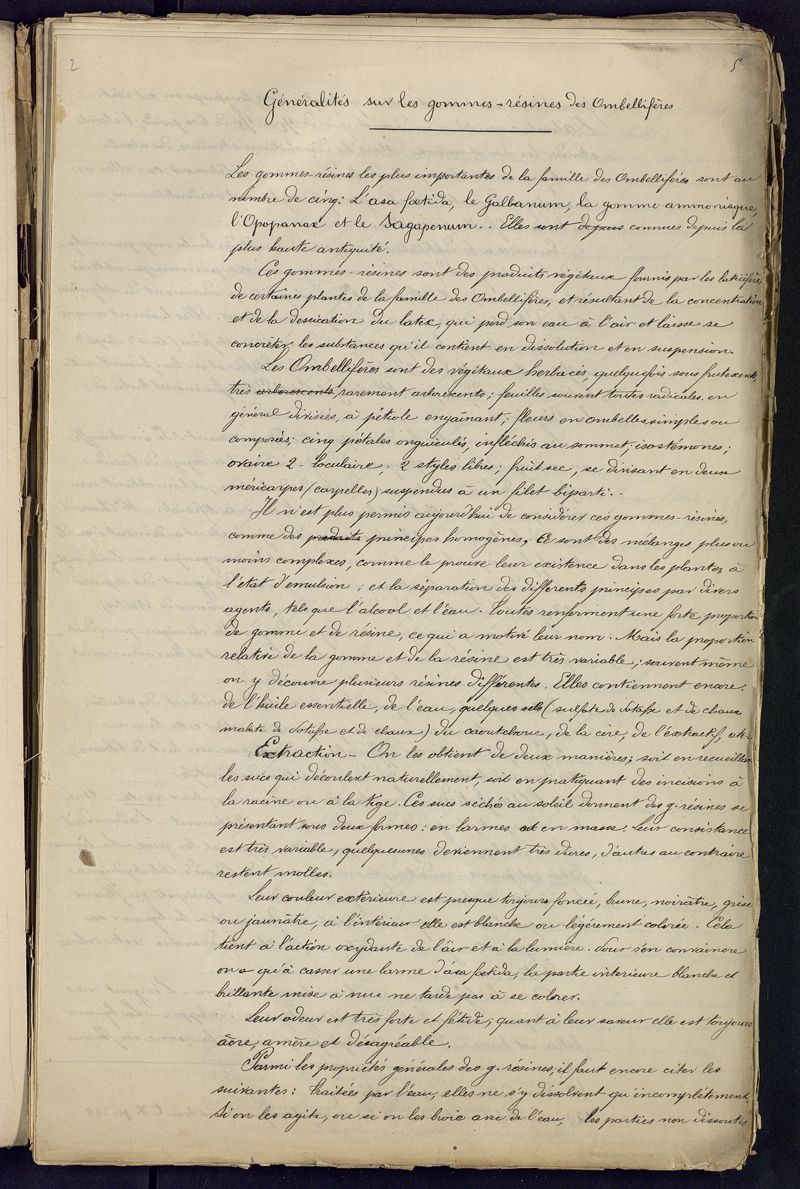 2
5
Généralités sur les gommes-résines des Ombellifères
Les gommes-résines les plus importantes de la famille des Ombellifères sont au
nombre de cinq: L'asa fœtida, le Galbanum, la gomme ammoniaque,
l'Opopanax et le Sagapenum. Elles sont depuis connues depuis la
plus haute antiquité.
Ces gommes-résines sont des produits végétaux fournis par les laticifères
de certaines plantes de la famille des Ombellifères, et résultant de la concentration
et de la dessication du latex, qui perd son eau à l'air et laisse se
concréter les substances qu'il contient en dissolution et en suspension.
Les Ombellifères sont des végétaux herbacés, quelquefois sous frutescents
très arborescents, rarement arborescents; feuilles souvent toutes radicales, en
général divisées, à pétiole engaînant; fleurs en ombelles simples ou
composées; cinq pétales onguiculés, infléchis au sommet; isostémones;
ovaire 2-loculaire. 2 styles libres; fruit sec, se divisant en deux
méricarpes (carpelles) suspendus à un filet biparti.
Il n'est plus permis aujourd'hui de considérer ces gommes-résines,
comme des produits principes homogènes; Ce sont des mélanges plus ou
moins complexes, comme le prouve leur existence dans les plantes à
l'état d'emulsion; et la séparation des differents principes par divers
agents, tels que l'alcool et l'eau. Toutes renferment une forte proportion
de gomme et de résine, ce qui a motivé leur nom. Mais la proportion
relative de la gomme et de la résine est très variable; souvent même
on y découvre plusieurs résines différentes. Elles contiennent encore:
de l'huile essentielle, de l'eau, quelques sels (sulfate de potasse et de chaux
malate de potasse et de chaux) du caoutchouc, de la cire, de l'extractif, etc-
Extraction - On les obtient de deux manières; soit en recueillant
les sucs qui découlent naturellement, soit en pratiquant des incisions à
la racine ou à la tige. Ces sucs séchés au soleil donnent des g. résines se
présentant sous deux formes: en larmes et en masse. Leur consistance
est très variable; quelquesunes deviennent très dures, d'autres au contraire
restent molles.
Leur couleur extérieure est presque toujours foncée, brune, noirâtre, grise
ou jaunâtre, à l'intérieur elle est blanche ou légérement colorée. Cela
tient à l'action oxydante de l'air et à la lumière. Pour s'en convaincre
on a qu'à casser une larme d'asa fœtida, la partie interieure blanche et
brillante mise à nue ne tarde pas à se colorer.
Leur odeur est très forte et fétide; quant à leur saveur elle est toujours
âcre, amère et désagréable.
Parmi les propriétés générales des g. résines, il faut encore citer les
suivantes: traitées par l'eau, elles ne s'y dissolvent qu'incomplètement.
Si on les agite, ou si on les broie avec de l'eau, les parties non dissoutes